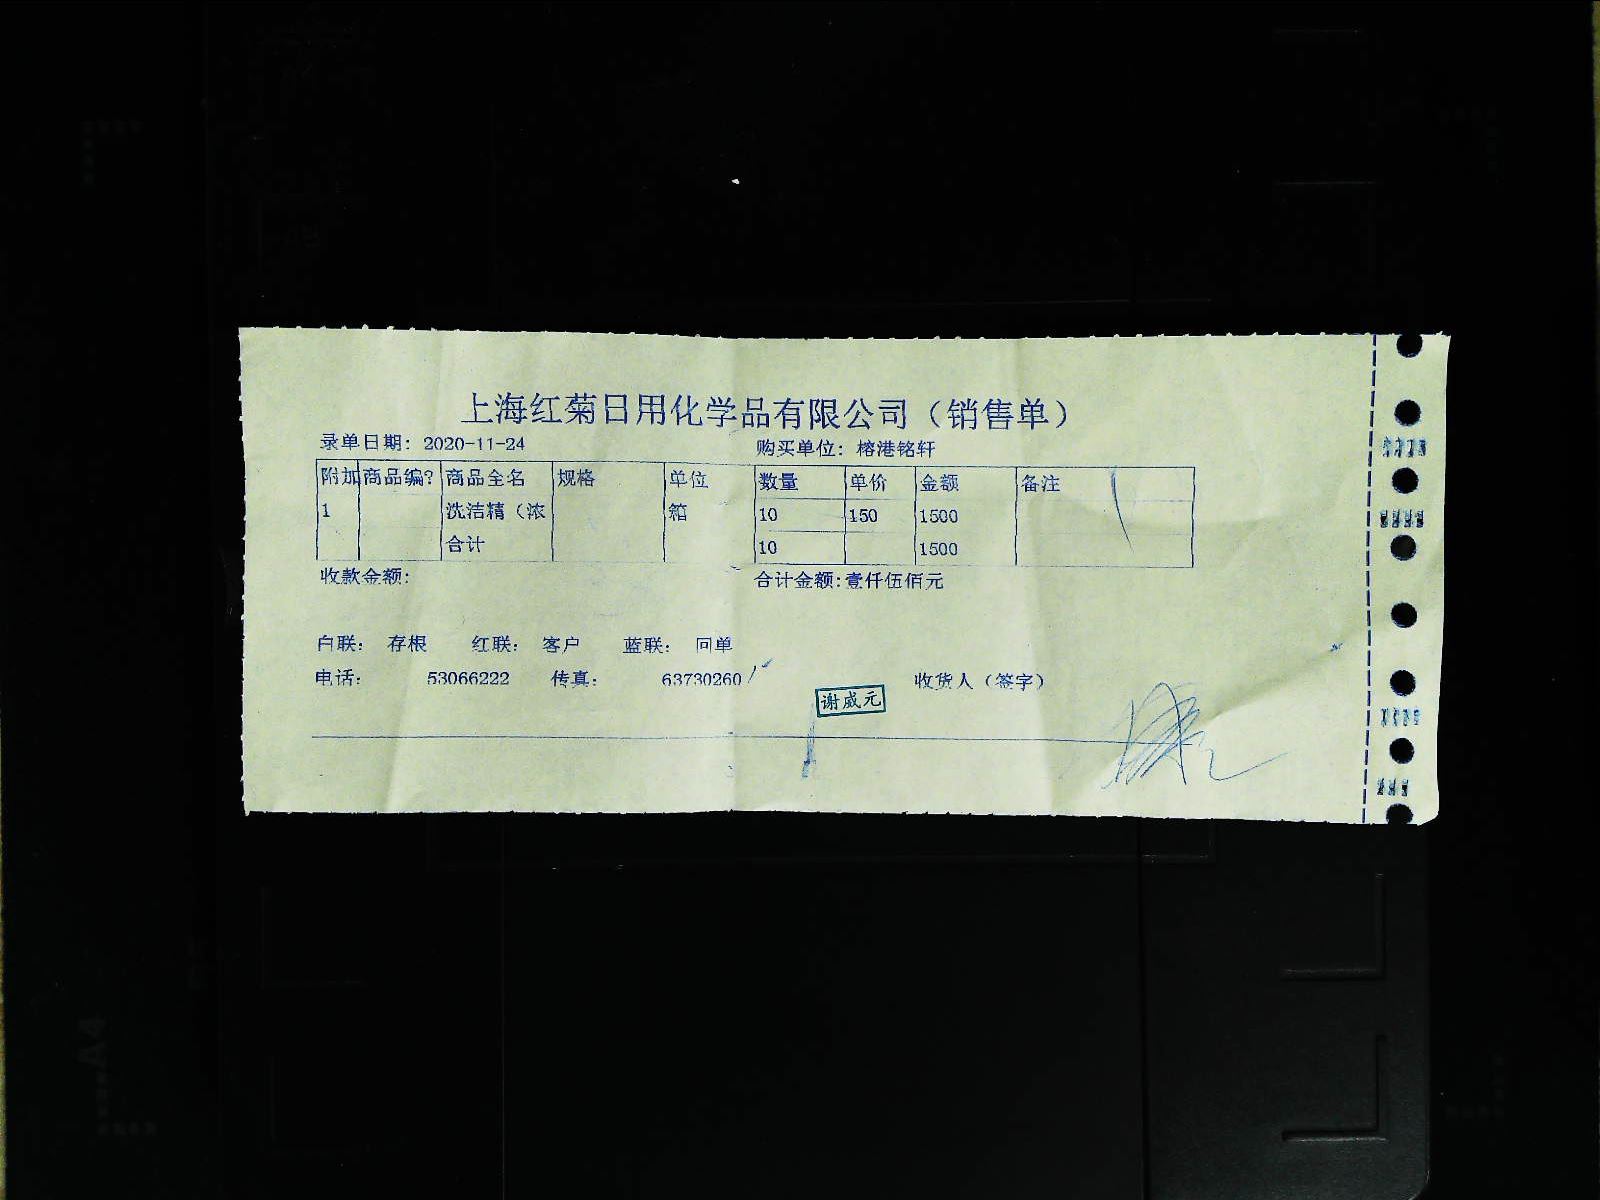 上海红菊日用化学品有限公司（销售单）
录单日期: 2020-11-24 购买单位: 榕港铭轩
附加 商品编? 商品全名 规格 单位 数量 单价 金额 备注
1 洗洁精（浓 箱 10 150 1500
合计 10 1500
收款金额: 合计金额:壹仟伍佰元
白联: 存根 红联: 客户 蓝联: 回单
电话: 53066222 传真: 63730260 收货人（签字）
谢威元